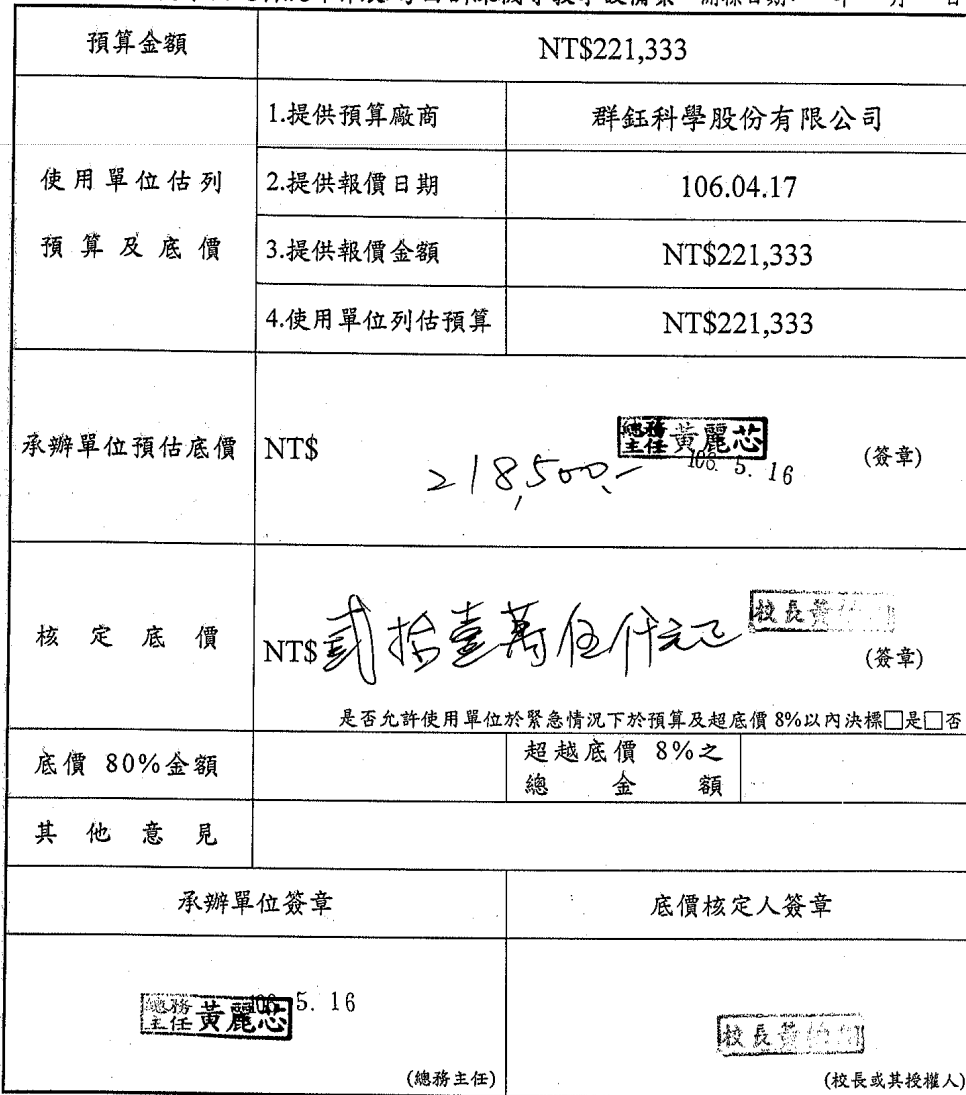 教學設備案 開標日期: 年 月 日
預算金額 NT$221,333
使用單位估列
預算及底價
1.提供預算廠商 群鈺科學股份有限公司
2.提供報價日期 106.04.17
3.提供報價金額 NT$221,333
4.使用單位列估預算 NT$221,333
承辦單位預估底價 NT$ 218,500.- 總務主任 黃麗芯 106. 5. 16 (簽章)
核定底價 NT$ 貳拾壹萬伍仟元正 校長黃 (簽章)
是否允許使用單位於緊急情況下於預算及超底價 8%以內決標□是□否
底價 80%金額 超越底價 8%之
總金額
其他意見
承辦單位簽章 底價核定人簽章
總務主任 黃麗芯 106. 5. 16 校長黃
(總務主任) (校長或其授權人)